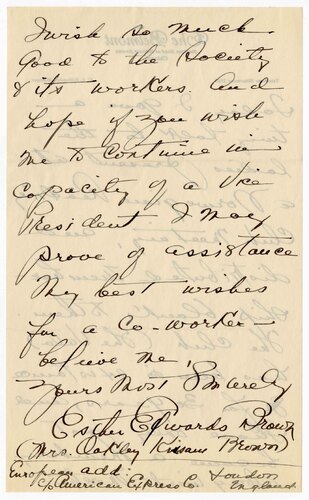 I wish so much
Good to the Society
& its workers. And
hope if you wish
me to continue in
capacity of a Vice
President I may
prove of assistance
My best wishes
for a co-worker –
believe me,
Yours Most Sincerely
Esther Edwards Brown
(Mrs. Oakley Kissam Brown)
European add:
c/o American Express Co.
London
England